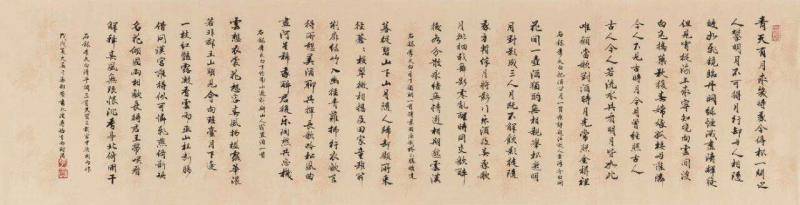 青天有月來幾時我今停杯一問之
人攀明月不可得月行却與人相隨
皎如飛鏡臨丹闕綠煙滅盡清輝發
但見宵從海上來寧知曉向雲間沒
白兔搗藥秋復春嫦娥孤棲與誰鄰
今人不見古時月今月曾經照古人
古人今人若流水共看明月皆如此
唯願當歌對酒時月光常照金樽裡
花間一壺酒獨酌無相親舉杯邀明
月對影成三人月既不解飲影徒隨
我身暫伴月將影行樂須及春我歌
月徘徊我舞影零亂醒時同交歡醉
後各分散永結無情遊相期邈雲漢
暮從碧山下山月隨人歸却顧所來
徑蒼蒼橫翠微相攜及田家童稚開
荆扉綠竹入幽徑青蘿拂行衣歡言
得所憩美酒聊共揮長歌吟松風曲
盡河星稀我醉君復樂陶然共忘機
雲想衣裳花想容春風拂檻露華濃
若非群玉山頭見會向瑤臺月下逢
一枝紅豔露凝香雲雨巫山枉斷腸
借問漢宮誰得似可憐飛燕倚新妝
名花傾國兩相歡長得君王帶笑看
解釋春風無限恨沉香亭北倚闌干